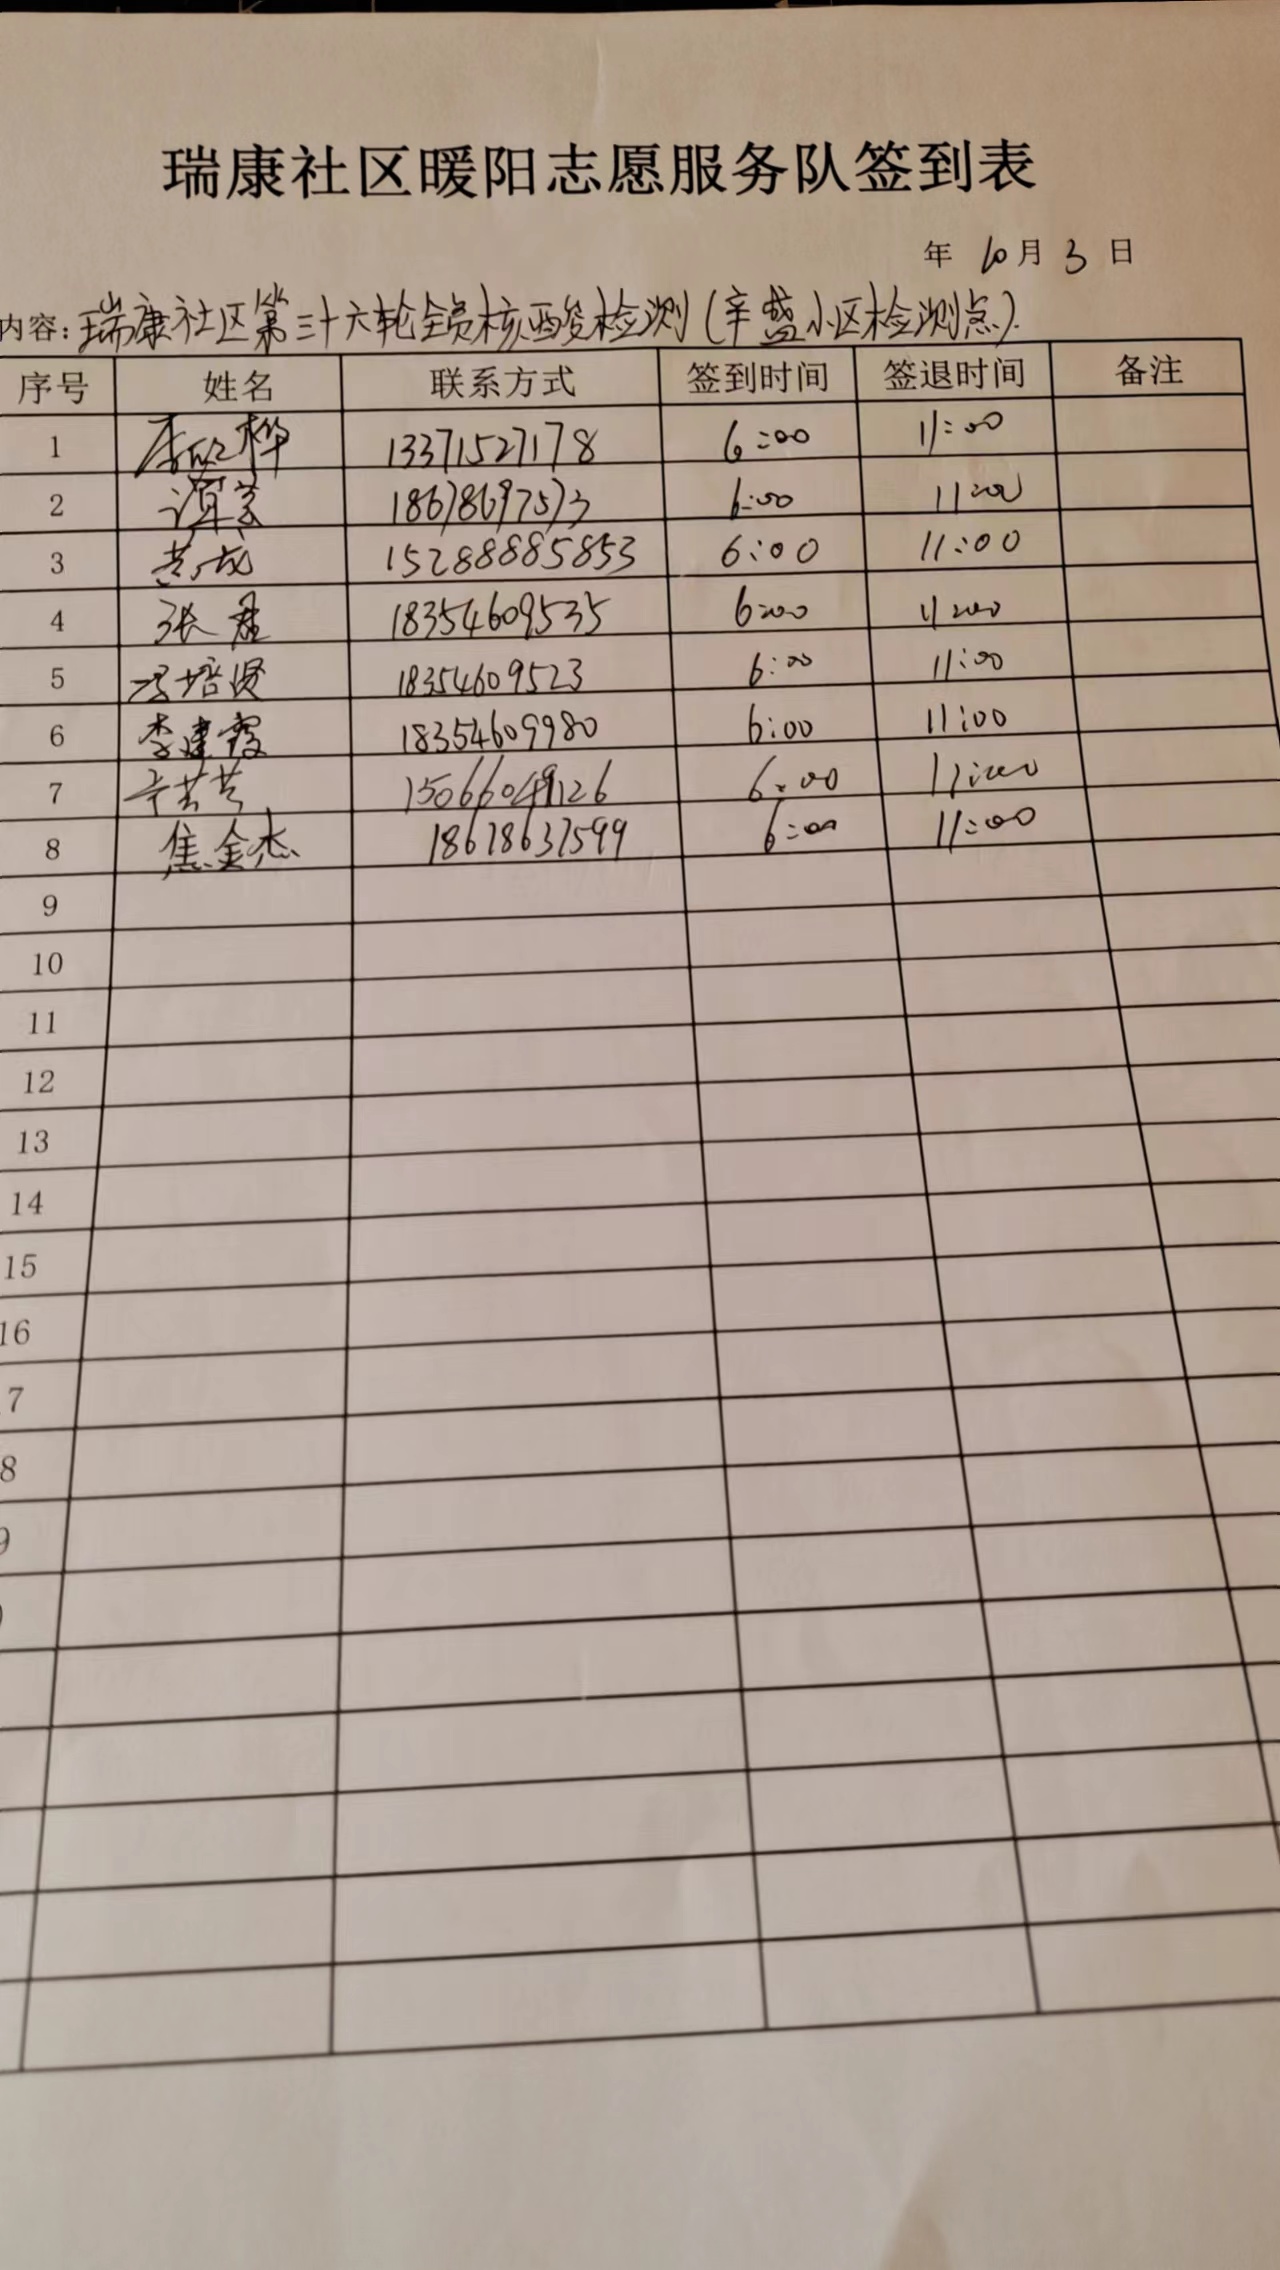 瑞康社区暖阳志愿服务队签到表
年 10月 3 日
内容: 瑞康社区第三十六轮全员核酸检测(辛盛小区检测点).
序号 姓名 联系方式 签到时间 签退时间 备注
1 13371527178 6:00 11:00
2 18678697573 6:00 11:00
3 黄成 15288885853 6:00 11:00
4 张君 18354609535 6:00 11:00
5 冯培贤 18354609523 6:00 11:00
6 李建霞 18354609980 6:00 11:00
7 6:00 11:00
8 焦金杰 18678637599 6:00 11:00
9
10
11
12
13
14
15
16
7
8
9